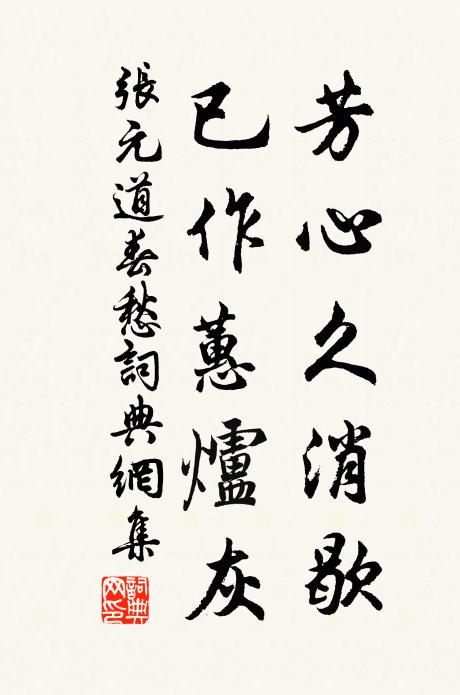 芳心久消歇
已作蕙爐灰
張元道春愁詞典網集
詞典網印